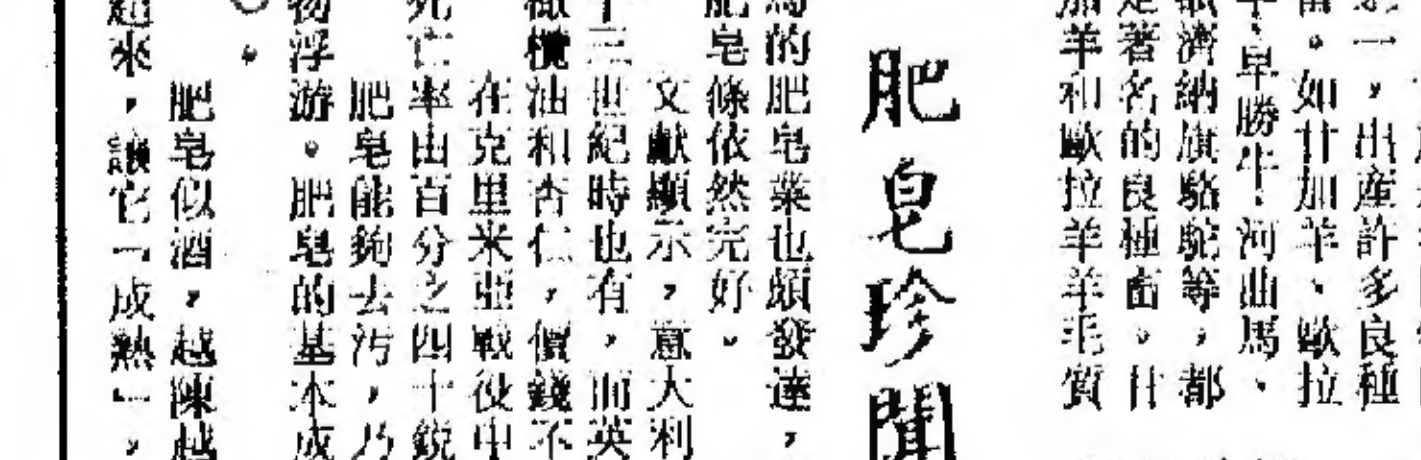 一，出産許多良種
。如甘加羊、歐拉
羊、早勝牛！河曲馬、
濟納旗駱駝等，都
是著名的良種畜。甘
加羊和歐拉羊羊毛質
肥皂珍聞
的肥皂業也頗發達，
肥皂條依然完好。
文獻顯示，意大利
十三世紀時也有，而英
橄欖油和杏仁，價錢不
在克里米亞戰役中
死亡率由百分之四十銳
肥皂能夠去污，乃
物浮游。肥皂的基本成
。
肥皂似酒，越陳越
來，讓它「成熟」，